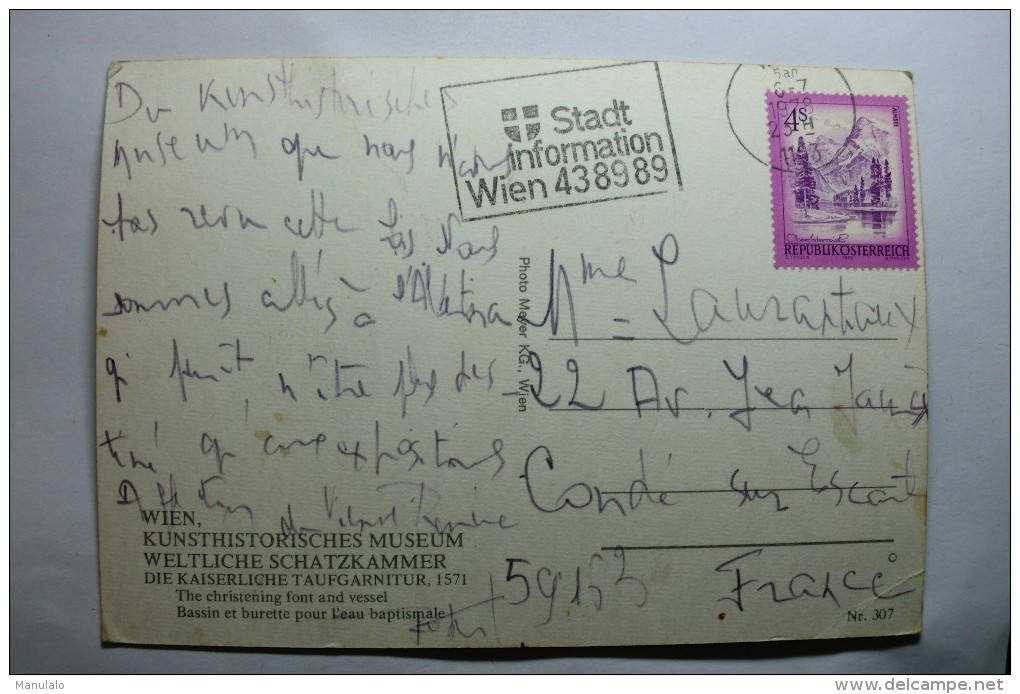 Du Kunsthistorisches
Museum que nous n'avons
pas revu cette fois Nous
sommes allés à l'Albertina
qui paraît n'être plus des
tiné qu'aux expositions
Stadt
information
Wien 43 89 89
1978
4 S
ALMSEE
Oberösterreich
REPUBLIK ÖSTERREICH
Photo Meyer KG., Wien
Mme
22 Av. Jean Jaurès
Condé sur Escaut
59163 France
WIEN,
KUNSTHISTORISCHES MUSEUM
WELTLICHE SCHATZKAMMER
DIE KAISERLICHE TAUFGARNITUR, 1571
The christening font and vessel
Bassin et burette pour l'eau baptismale
Nr. 307
Manulalo
www.delcampe.net